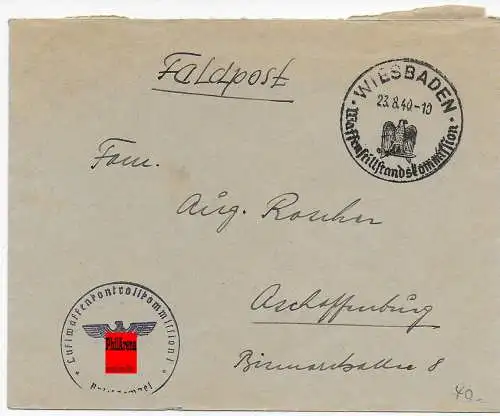 Feldpost
WIESBADEN
23.8.40-10
Waffenstillstandskommission
Fam.
Aug. Roscher
Aschaffenburg
Bismarckallee 8
Luftwaffenkontrollkommission I
PhilArena
40.-